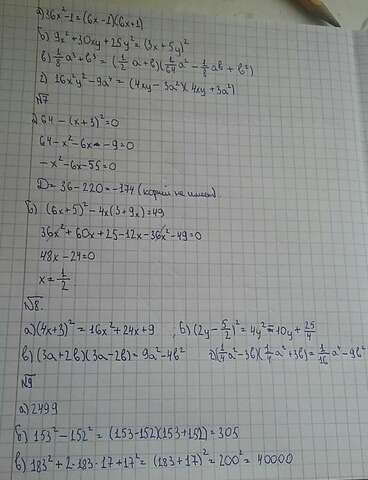 а) 36x² - 1 = (6x - 1)(6x + 1)
б) 9x² + 30xy + 25y² = (3x + 5y)²
в) 1/8 a³ + b³ = (1/2 a + b)(1/64 a² - 1/8 ab + b²)
г) 16x²y² - 9a⁴ = (4xy - 3a²)(4xy + 3a²)
№7
a) 64 - (x + 3)² = 0
64 - x² - 6x - 9 = 0
-x² - 6x - 55 = 0
D = 36 - 220 = -174 (корней не имеет)
б) (6x + 5)² - 4x(3 + 9x) = 49
36x² + 60x + 25 - 12x - 36x² - 49 = 0
48x - 24 = 0
x = 1/2
№8.
а) (4x + 3)² = 16x² + 24x + 9 , б) (2y - 5/2)² = 4y² - 10y + 25/4
в) (3a + 2b)(3a - 2b) = 9a² - 4b² г) (1/4 a² - 3b)(1/4 a² + 3b) = 1/16 a⁴ - 9b²
№9
а) 2499
б) 153² - 152² = (153 - 152)(153 + 152) = 305
в) 183² + 2·183·17 + 17² = (183 + 17)² = 200² = 40000